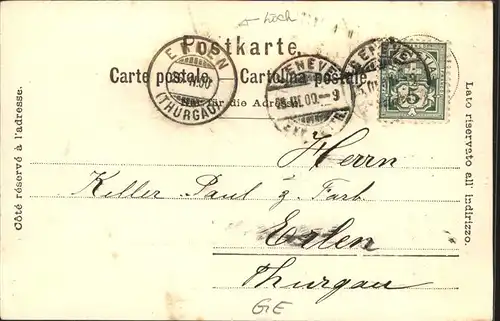 Loch
Postkarte.
Carte postale. Cartolina postale.
Nur für die Adresse.
ERLEN
(THURGAU)
GENEVE
5
Côté réservé à l'adresse.
Lato riservato all' indirizzo.
Herrn
Keller Paul z. Farb.
Erlen
Thurgau
GE